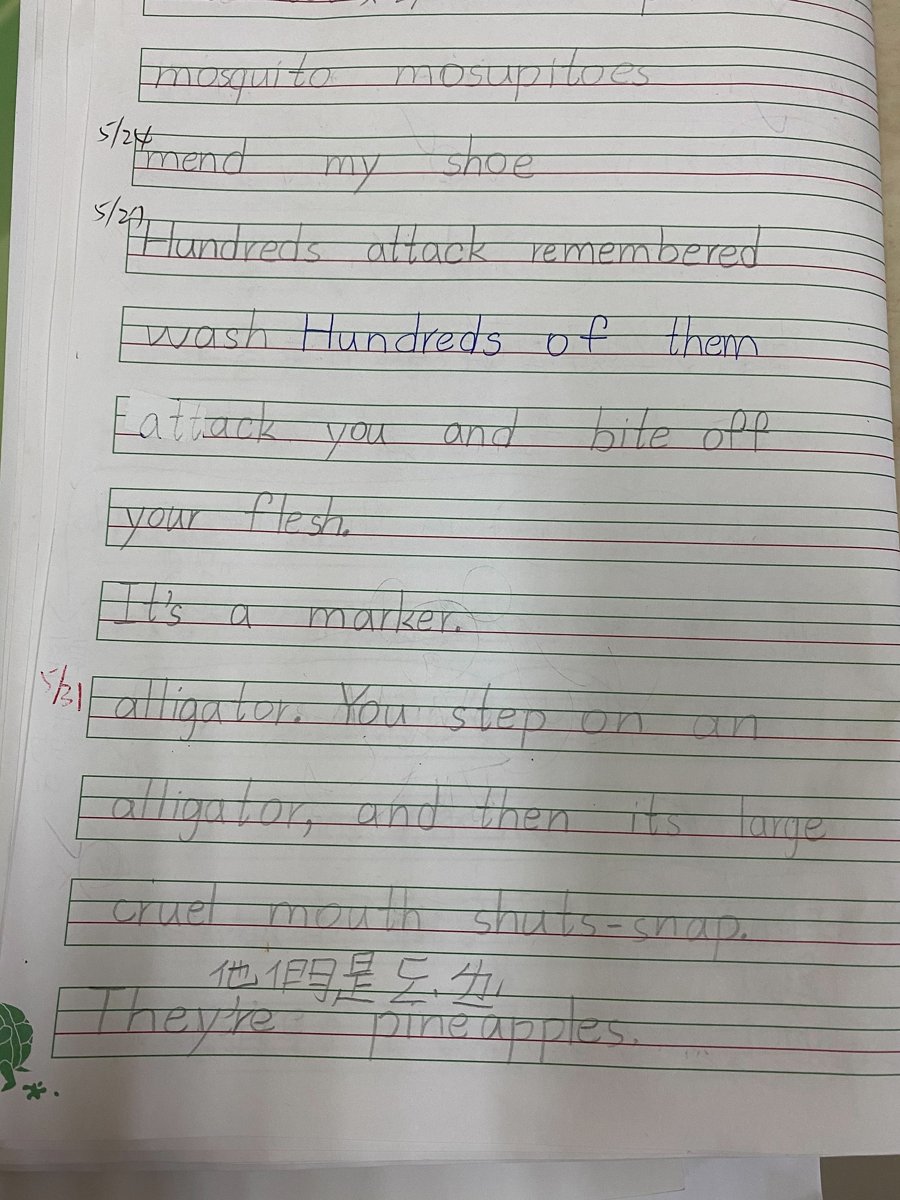 mosquito mosupitoes
5/24
mend my shoe
5/27
Hundreds attack remembered
wash Hundreds of them
attack you and bite off
your flesh.
It's a marker.
5/31
alligator. You step on an
alligator, and then its large
cruel mouth shuts-snap.
他們是
They're pineapples.